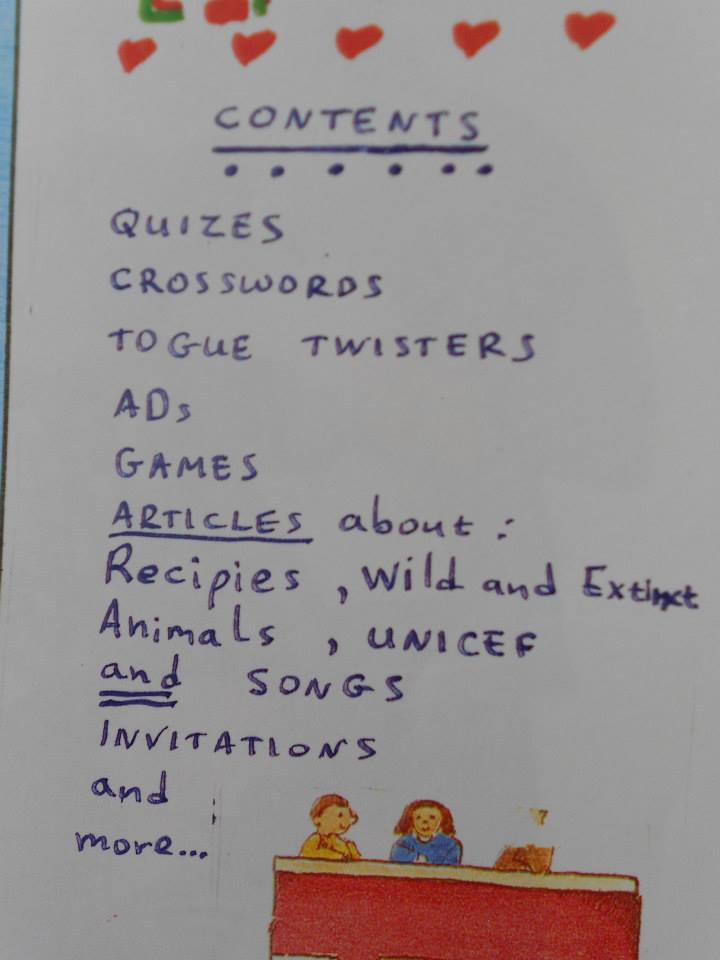 CONTENTS
QUIZES
CROSSWORDS
TOGUE TWISTERS
ADs
GAMES
ARTICLES about:
Recipies, Wild and Extinct
Animals, UNICEF
and SONGS
INVITATIONS
and
more...